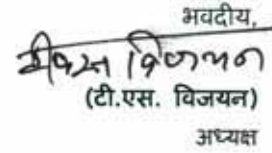 भवदीय,
(टी.एस. विजयन)
अध्यक्ष